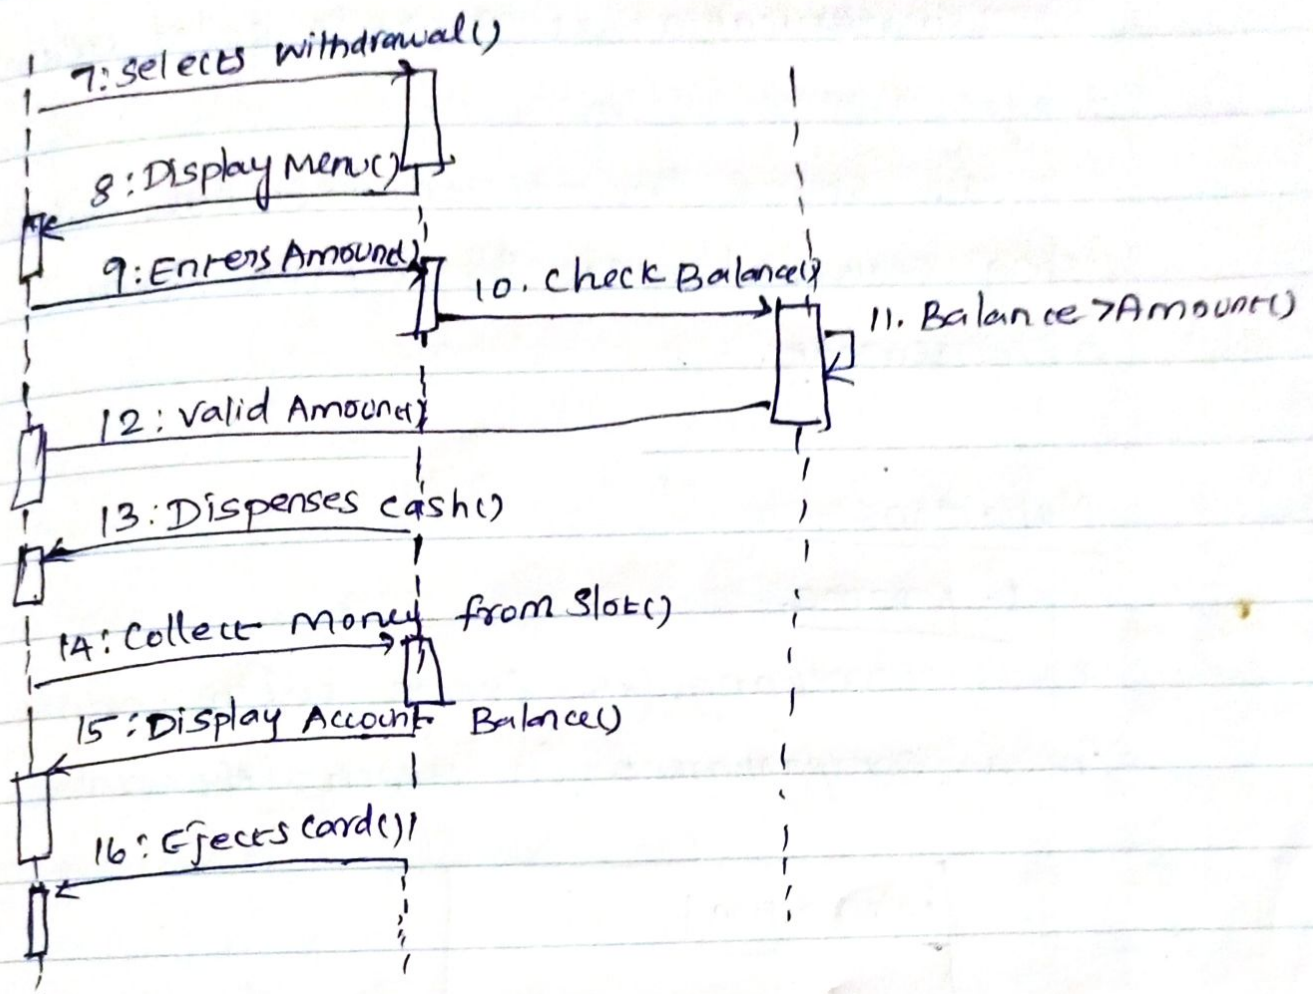 7: Selects Withdrawal()
8: Display Menu()
9: Enters Amount()
10. Check Balance()
11. Balance>Amount()
12: Valid Amount()
13: Dispenses Cash()
14: Collect Money from Slot()
15: Display Account Balance()
16: Ejects Card()